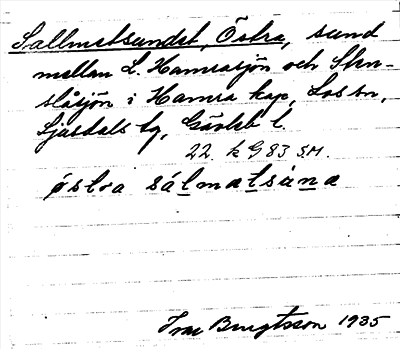 Sallmetsundet, Östra, sund
mellan L. Hamrasjön och Sten-
slåsjön i Hamra kap, Los sn,
Ljusdals tg, Gävleb l.
22. k G 83 S.M.
östra sálmatsúna
Ivar Bengtsson 1935